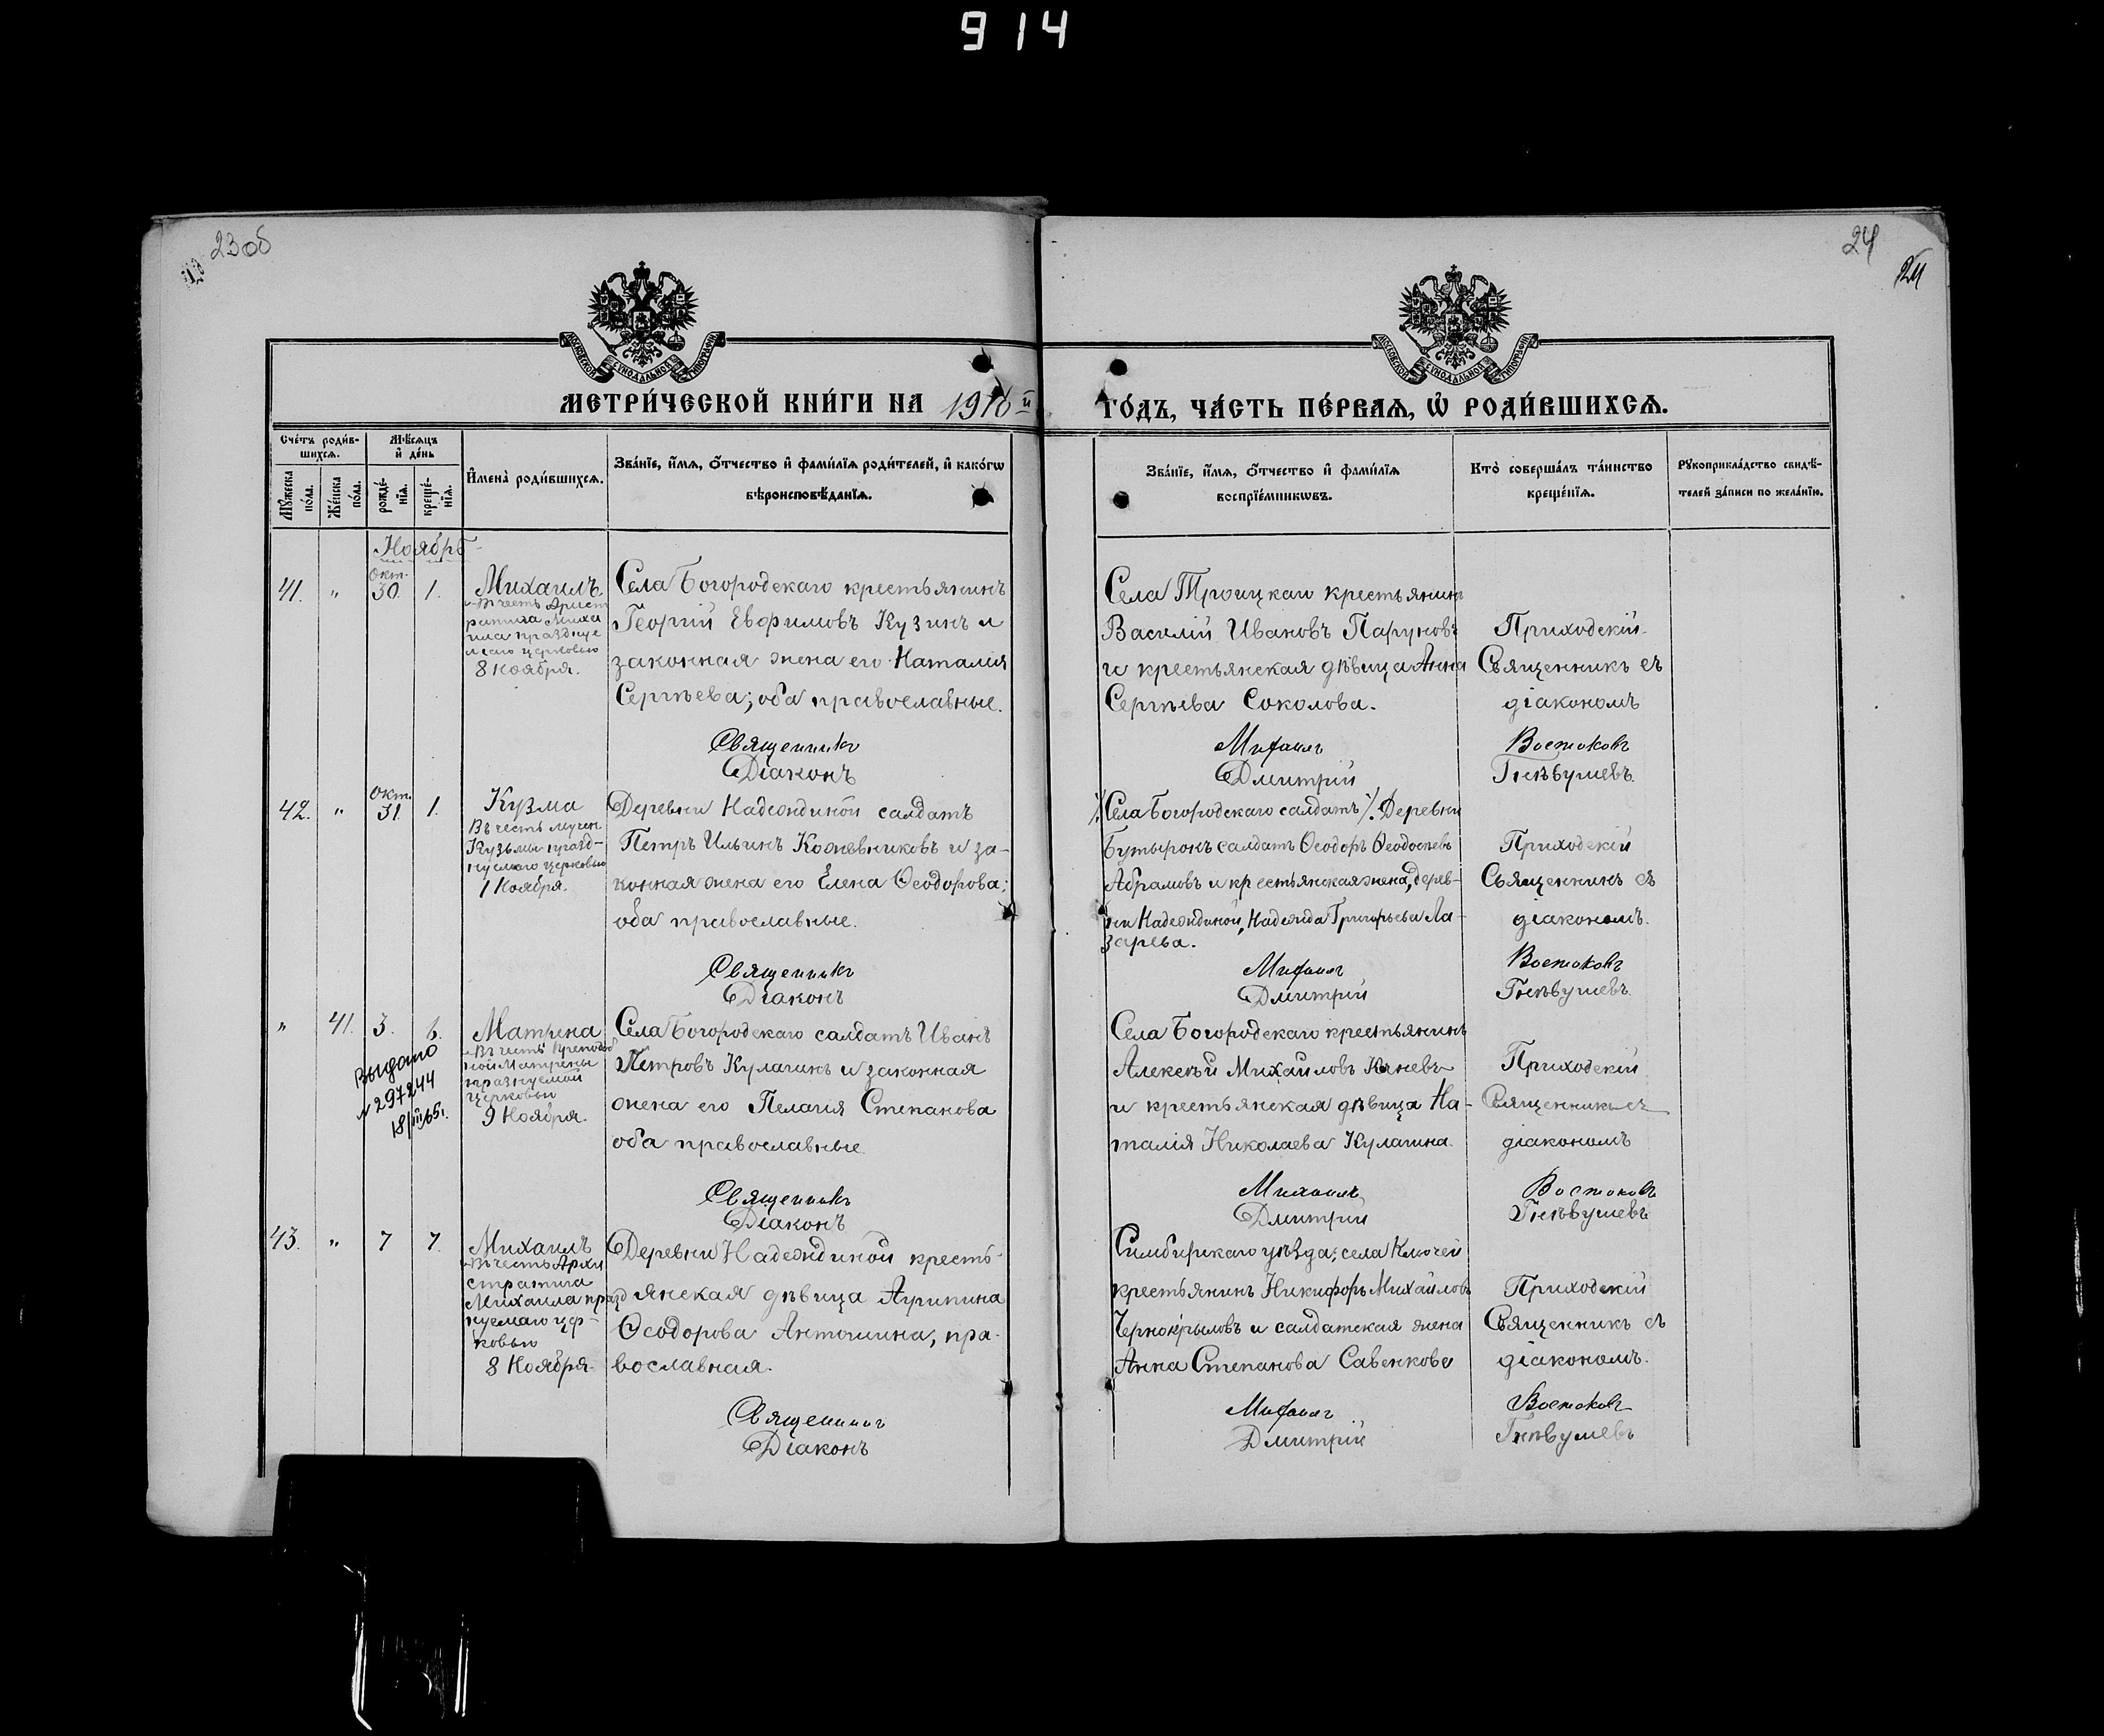 914
23об
24
24
МОСКОВСКОЙ СѴНОДАЛЬНОЙ ТИПОГРАФІИ
МОСКОВСКОЙ СѴНОДАЛЬНОЙ ТИПОГРАФІИ
МЕТРИ́ЧЕСКОЙ КНИ́ГИ НА 1916й
ГО́ДЪ, ЧА́СТЬ ПЕ́РВАѦ, Ѡ҆ РОДИ́ВШИХСѦ.
Сче́тъ роди́в-
шихсѧ.
Мꙋ́жеска по́ла.
Же́нска по́ла.
Мѣ́сѧцъ
и҆ де́нь
рожде́-
нїѧ.
креще́-
нїѧ.
И҆мена̀ роди́вшихсѧ.
Зва́нїе, и҆́мѧ, ѻ҆́тчество и҆ фами́лїѧ роди́телей, и҆ како́гѡ
вѣроисповѣ́данїѧ.
Зва́нїе, и҆́мѧ, ѻ҆́тчество и҆ фами́лїѧ
воспрїе́мникѡвъ.
Кто̀ соверша́лъ та́инство
креще́нїѧ.
Рꙋкоприкла́дство свидѣ́-
телей за́писи по жела́нїю.
Ноябрь
41. " Окт. 30. 1. Михаилъ
Въ честь Архист
ратига Миха
ила празднуе
маго церковью
8 Ноября.
Села Богородскаго крестьянинъ
Георгій Евфимовъ Кузинъ и
законная жена его Наталія
Сергѣева; оба православные.
Священникъ
Діаконъ
Села Троицкаго крестьянинъ
Василій Ивановъ Паруновъ
и крестьянская дѣвица Анна
Сергѣева Соколова.
Михаилъ
Дмитрій
Приходскій
Священникъ съ
діакономъ
Востоковъ
Гнѣвушевъ.
42. " Окт. 31. 1. Кузма
Въ честь мучен.
Кузьмы празд-
нуемаго церковью
1 Ноября.
Деревни Надеждиной солдатъ
Петръ Ильинъ Кожевниковъ и за-
конная жена его Елена Ѳеодорова;
оба православные.
Священникъ
Діаконъ
Села Богородскаго солдатъ ./. Деревни
Бутырокъ солдатъ Ѳеодоръ Ѳеодосѣевъ
Абрамовъ и крестьянская жена, дерев-
ни Надеждиной, Надежда Григорьева Ла-
зарева.
Михаилъ
Дмитрій
Приходскій
Священникъ съ
діакономъ.
Востоковъ
Гнѣвушевъ.
" 41. 3. 6. Матрена
Въ честь Преподоб
ной Матрены
празнуемой
церковью
9 Ноября.
Выдано
№ 297244
18/III 65г.
Села Богородскаго салдатъ Иванъ
Петровъ Кулагинъ и законная
жена его Пелагія Степанова
оба православные.
Священникъ
Діаконъ
Села Богородскаго крестьянинъ
Алексѣй Михаиловъ Каневъ
и крестьянская дѣвица На-
талія Николаева Кулагина.
Михаилъ
Дмитрій
Приходскій
Священникъ съ
діакономъ
Востоковъ
Гнѣвушевъ
43. " 7 7. Михаилъ
Въ честь Архи
стратига
Михаила празд
нуемаго цер-
ковью
8 Ноября.
Деревни Надеждиной кресть-
янская дѣвица Агрипина
Ѳеодорова Антошина, пра-
вославная.
Священникъ
Діаконъ
Симбирскаго уѣзда, села Ключей
крестьянинъ Никифоръ Михайловъ
Чернокрыловъ и салдатская жена
Анна Степанова Савенкова
Михаилъ
Дмитрій
Приходскій
Священникъ съ
діакономъ.
Востоковъ
Гнѣвушевъ